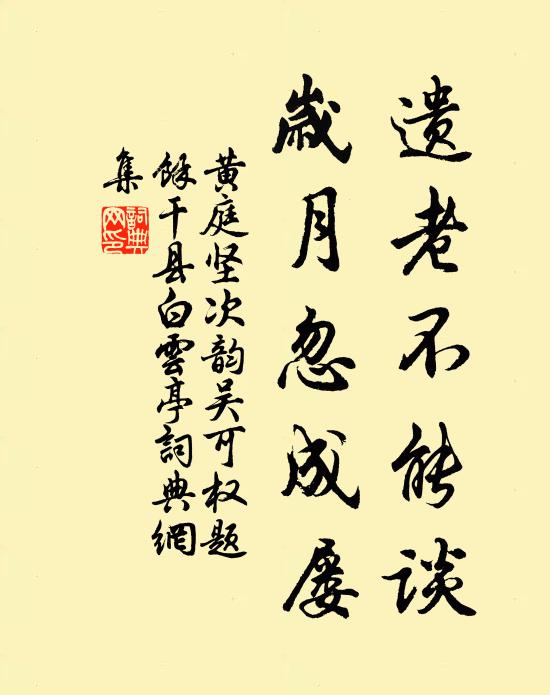 遗老不能谈
岁月忽成屡
黄庭坚次韵吴可权题
馀干县白雲亭詞典網
集
詞典网印